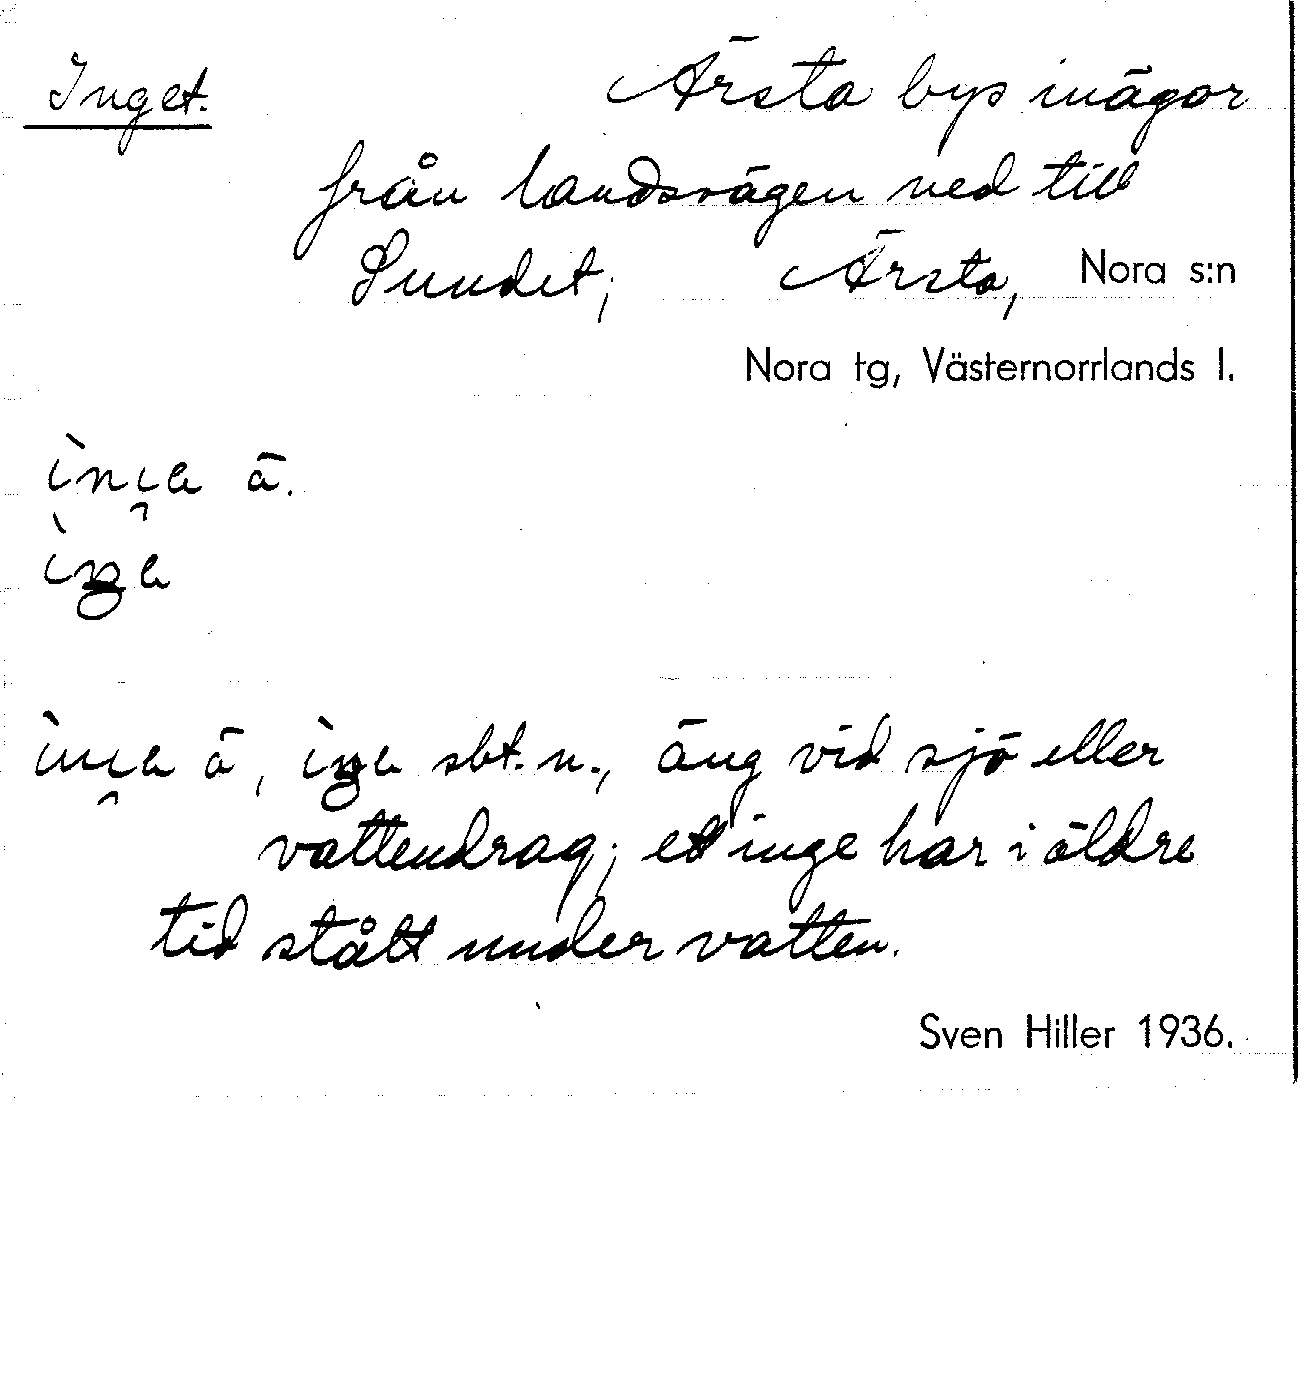 Inget. Ärsta bys inägor
från landsvägen ned till
Sundet; Ärsta, Nora s:n
Nora tg, Västernorrlands l.
ä.
ä, sbt. n., äng vid sjö eller
vattendrag; ett inge har i äldre
tid stått under vatten.
Sven Hiller 1936.